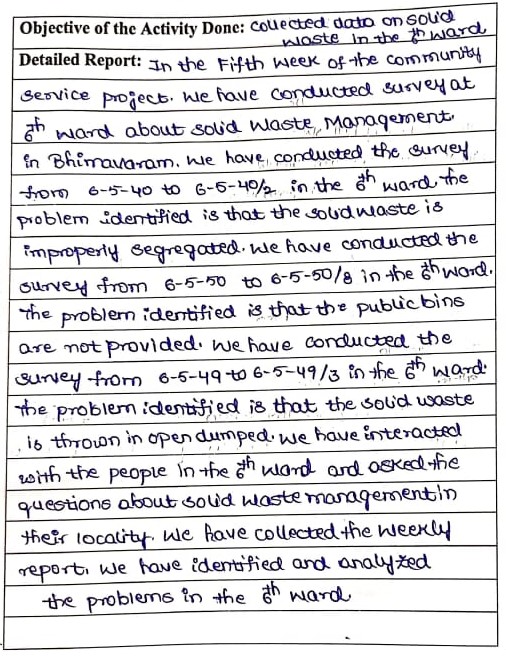 Objective of the Activity Done: collected data on solid
waste in the 6th ward
Detailed Report: In the Fifth week of the community
service project. we have conducted survey at
6th ward about solid waste Management
in Bhimavaram. we have conducted the survey
from 6-5-40 to 6-5-40/2 in the 6th ward the
problem identified is that the solid waste is
improperly segregated. we have conducted the
survey from 6-5-50 to 6-5-50/8 in the 6th ward.
The problem identified is that the public bins
are not provided. we have conducted the
survey from 6-5-49 to 6-5-49/3 in the 6th ward.
the problem identified is that the solid waste
is thrown in open dumped. we have interacted
with the people in the 6th ward and asked the
questions about solid waste management in
their locality. we have collected the weekly
report. we have identified and analyzed
the problems in the 6th ward